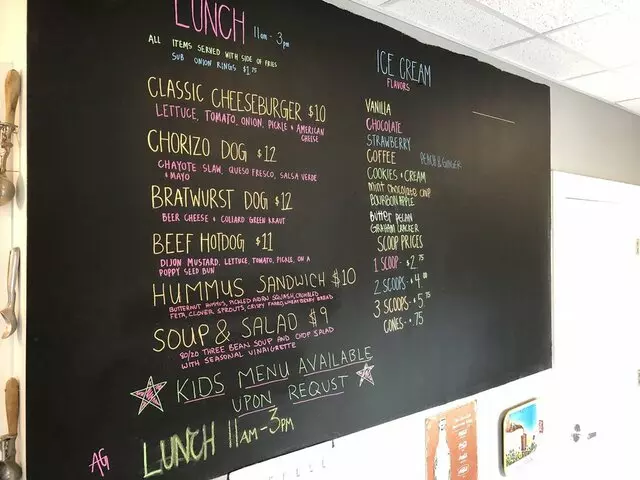 LUNCH 11am - 3pm
ALL ITEMS SERVED WITH SIDE OF FRIES
SUB ONION RINGS $1.75
CLASSIC CHEESEBURGER $10
LETTUCE, TOMATO, ONION, PICKLE + AMERICAN
CHEESE
CHORIZO DOG $12
CHAYOTE SLAW, QUESO FRESCO, SALSA VERDE
+ MAYO
BRATWURST DOG $12
BEER CHEESE + COLLARD GREEN KRAUT
BEEF HOTDOG $11
DIJON MUSTARD, LETTUCE, TOMATO, PICKLE, ON A
POPPY SEED BUN
HUMMUS SANDWICH $10
BUTTERNUT HUMMUS, PICKLED ACORN SQUASH, CRUMBLED
FETA, CLOVER SPROUTS, CRISPY FARRO, WHEAT BERRY BREAD
SOUP & SALAD $9
80/20 THREE BEAN SOUP AND CHOP SALAD
WITH SEASONAL VINAIGRETTE
KIDS MENU AVAILABLE
UPON REQUST
LUNCH 11AM-3PM
AG
ICE CREAM
FLAVORS
VANILLA
CHOCOLATE
STRAWBERRY
COFFEE PEACH & GINGER
COOKIES + CREAM
MINT CHOCOLATE CHIP
BOURBON APPLE
BUTTER PECAN
GRAHAM CRACKER
SCOOP PRICES
1 SCOOP - $2.75
2 SCOOPS - $4.00
3 SCOOPS - $5.75
CONES - $.75